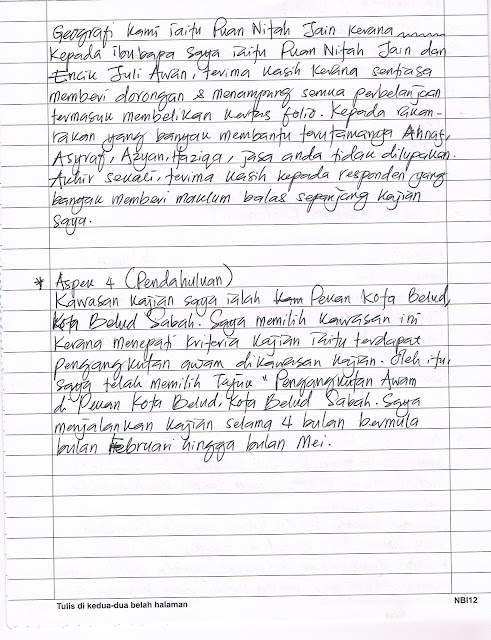 Geografi kami iaitu Puan Nitah Jain kerana
Kepada ibubapa saya iaitu Puan Nitah Jain dan
Encik Juli Awan, terima kasih kerana sentiasa
memberi dorongan & menampung semua perbelanjaan
termasuk membelikan kertas folio. Kepada rakan-
rakan yang banyak membantu terutamanya Ahnaf,
Asyraf, Azyan, Haziqa, jasa anda tidak dilupakan.
Akhir sekali, terima kasih kepada responden yang
banyak memberi maklum balas sepanjang kajian
saya.
* Aspek 4 (Pendahuluan)
Kawasan kajian saya ialah Kam Pekan Kota Belud,
Kota Belud Sabah. Saya memilih kawasan ini
kerana menepati kriteria kajian iaitu terdapat
pengangkutan awam dikawasan kajian. Oleh itu,
saya telah memilih Tajuk "Pengangkutan Awam
di Pekan Kota Belud, Kota Belud Sabah. Saya
menjalankan kajian selama 4 bulan bermula
bulan Februari hingga bulan Mei.
Tulis di kedua-dua belah halaman
NBI12